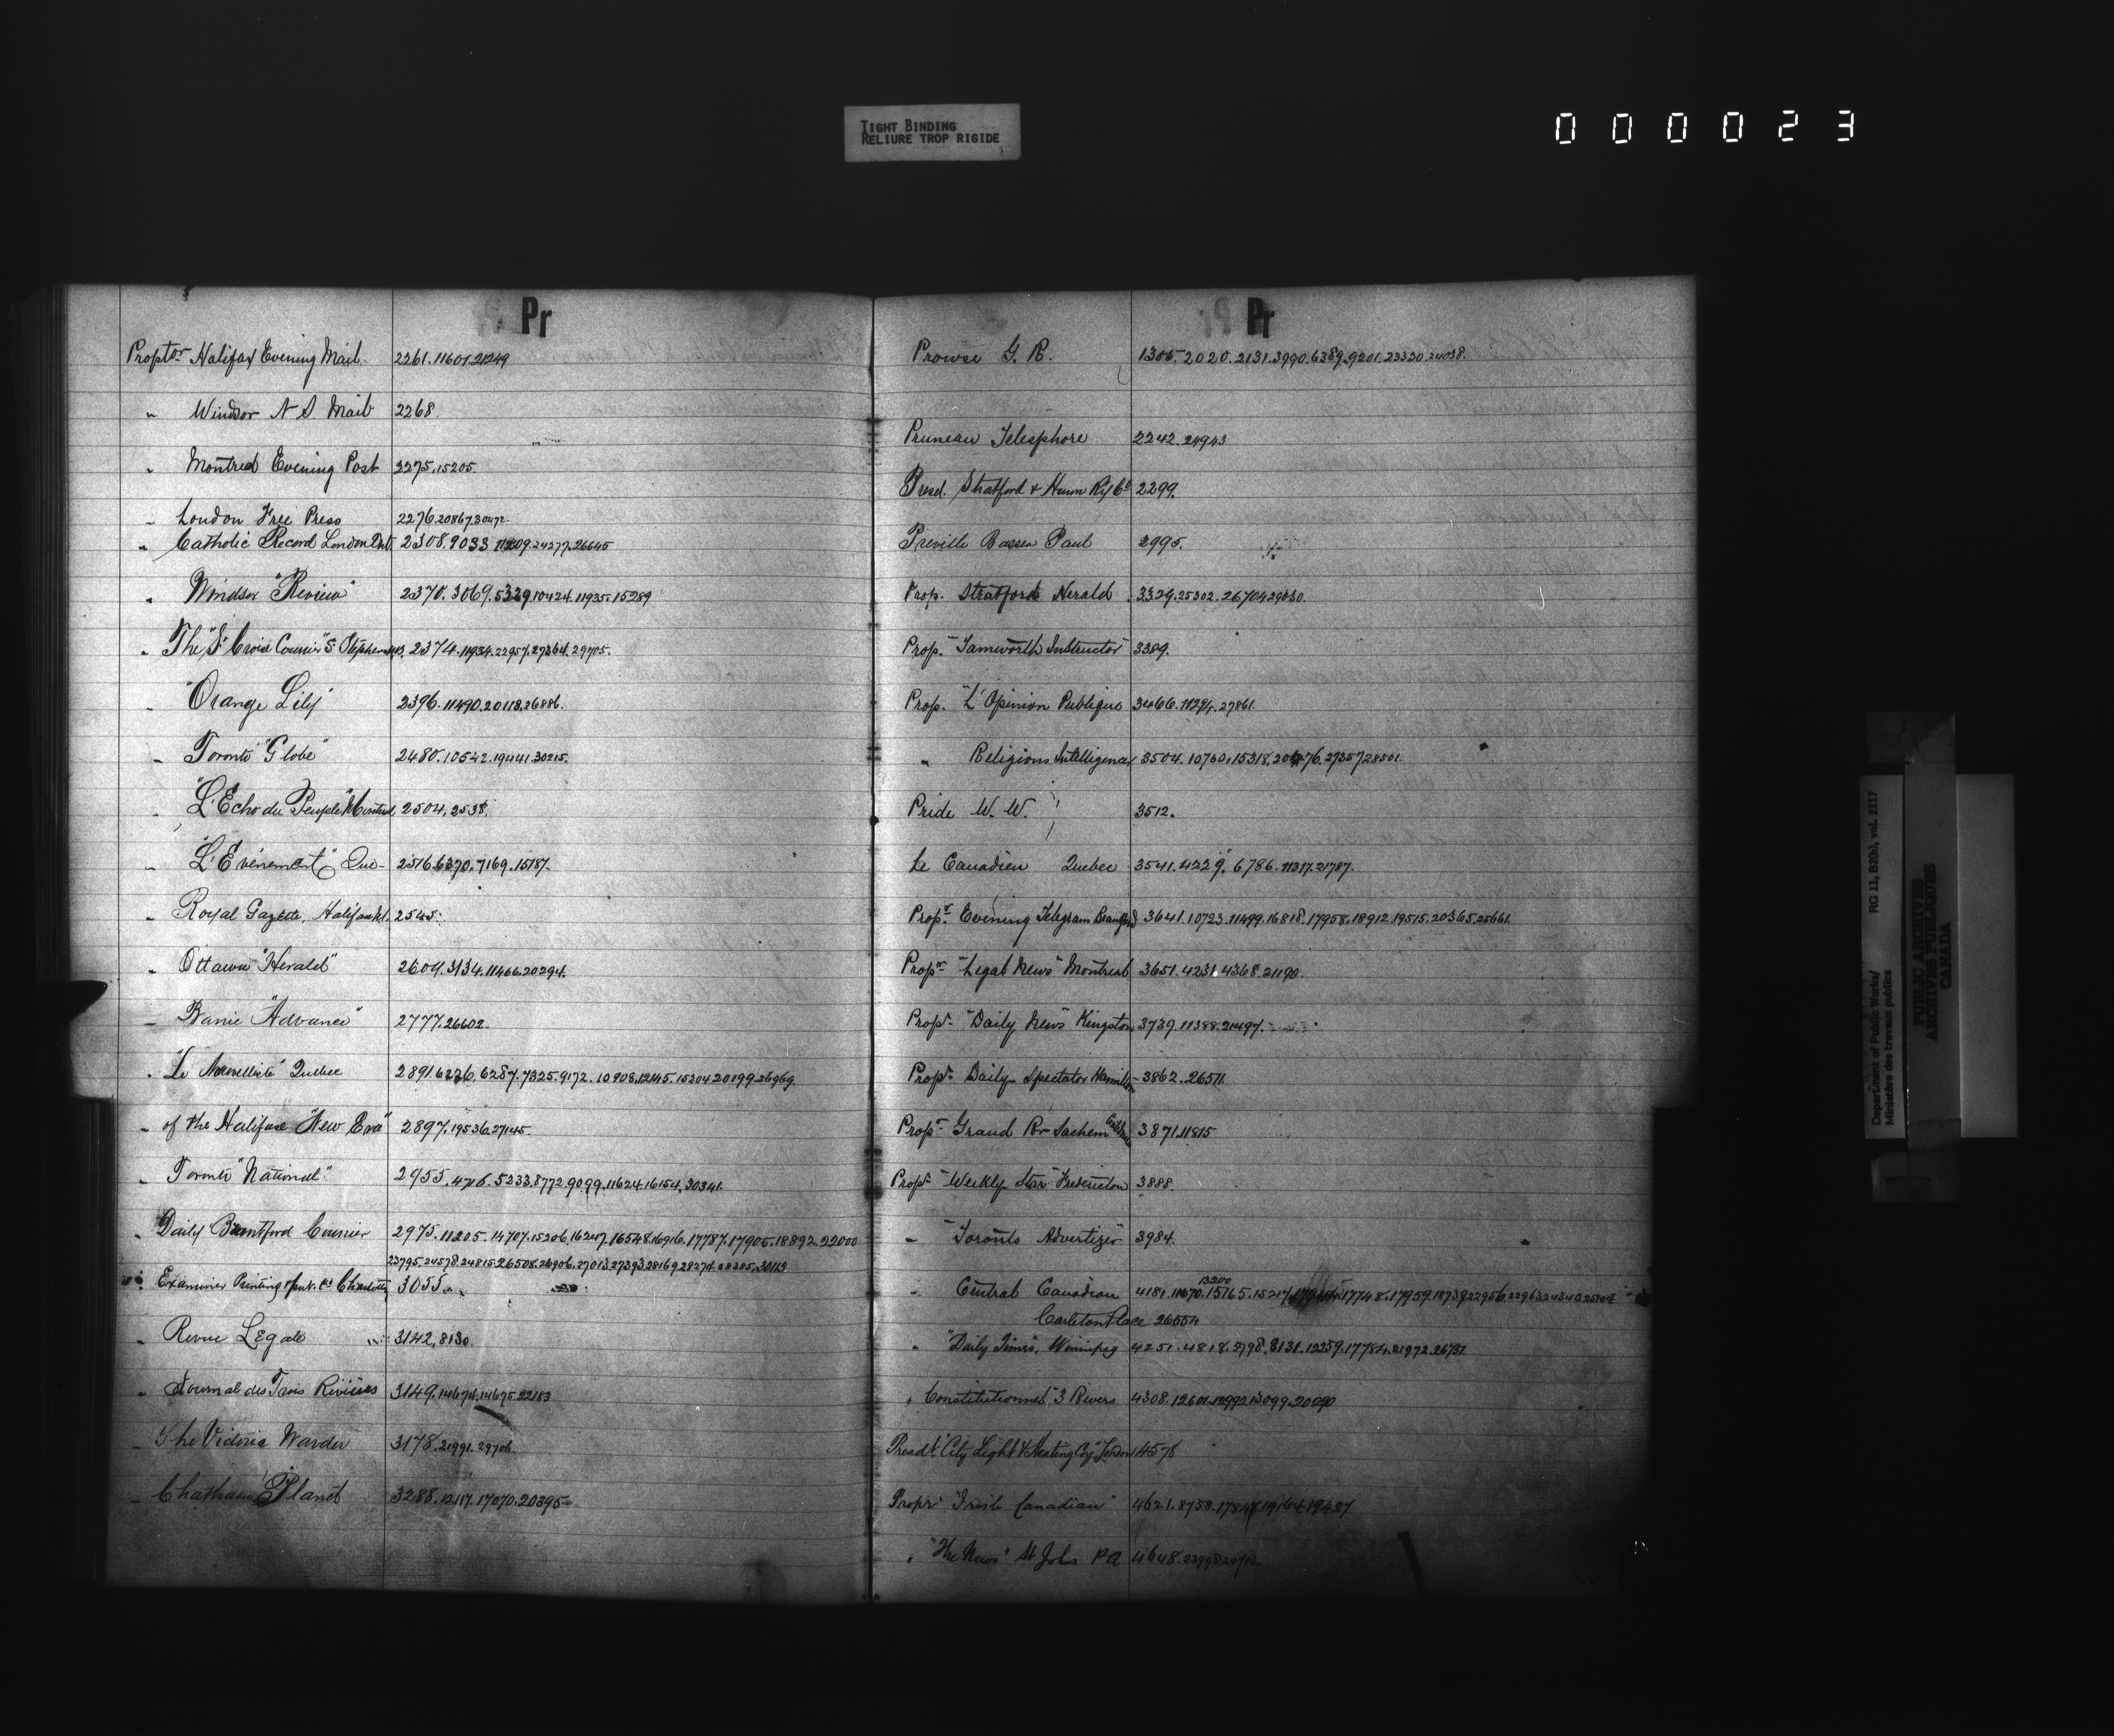 TIGHT BINDING
RELIURE TROP RIGIDE
000023
Pr
Proptor Halifax Evening Mail. 2261.11601.21249
" Windsor N S Mail 2268.
" Montreal Evening Post 2275.15205.
" London Free Press 2276.20867.30472.
" Catholic Record London Ont. 2308.9033.11209.24277.26645
" Windsor "Review" 2370.3069.5329.10424.11935.15289
" The "St Croix Courier" St Stephen NB. 2374.11934.22957.27364.29705.
" "Orange Lily" 2396.11490.20118.26886.
" Toronto "Globe" 2480.10542.19441.30215.
" "L'Echo du Peuple" Montreal 2504.2538.
" "L'Evénement" Que- 2516.6370.7169.15187.
" Royal Gazette, Halifax 2545.
" Ottawa "Herald" 2604.3134.11466.20294.
" Barrie "Advance" 2777.26602.
" "Le Nouvelliste" Quebec 2891.6226.6287.7325.9172.10908.12145.15204.20199.26969
" of the Halifax "New Era" 2897.19536.27145.
" Toronto "National" 2955.4716.5233.8772.9099.11624.16154.30341.
" Daily Brantford Courier 2975.11205.14707.15206.16247.16548.16916.17787.17905.18892.22000
23795.24578.24815.26508.26906.27013.27393.28169.28274.28385.30113
" Examiner Printing 3055.
" Revue Légale 3142.8130.
" Journal des Trois Rivières 3149.14674.14675.22183
" The Victoria Warder 3178.21991.29706.
" Chatham Planet 3288.12117.17070.20395
Pr
Prowse G. R. 1305.2020.2131.3990.6389.9201.23330.24038.
Pruneau Telesphore 2242.24943
Presd. Stratford & Huron Rly Co 2299.
Preville Paul 2995.
Prop. Stratford Herald 3329.25302.26704.29030.
Prop. "Tamworth Instructor" 3389.
Prop. "L'Opinion Publique 3466.11294.27861.
" Religious Intelligencer 3504.10760.15318.27357.28501.
Pride W. W. 3512.
Le Canadien Quebec 3541.4229.6786.11317.21787.
Propr. Evening Telegram Brantford 3641.10723.11499.16818.17958.18912.19515.20365.25661.
Propr. "Legal News" Montreal 3651.4231.4368.21190.
Propr. "Daily News" Kingston 3739.11388.21497.
Propr. Daily Spectator Hamilton 3862.26511.
Propr. Grand Rr Sachem 3871.11815
Propr. "Weekly Star" Fredericton 3888.
" "Toronto Advertizer" 3984.
13200
" Central Canadian 4181.11070.15165.15217.17748.17959.18739.22956.22963
Carleton Place 26554
" "Daily Times", Winnipeg 4251.4818.5798.8131.12259.17784.21972.26751.
" Constitutionnel" 3 Rivers 4308.12601.12992.13099.20090
Presdt. City Light & Heating Coy London 4578
Propr. "Irish Canadian" 4621.8758.17847.19164.19427
" "The News" St Johns P Q 4648.
Department of Public Works/
Ministère des travaux publics
RG 11, B2(b), vol. 2117
PUBLIC ARCHIVES
ARCHIVES PUBLIQUES
CANADA